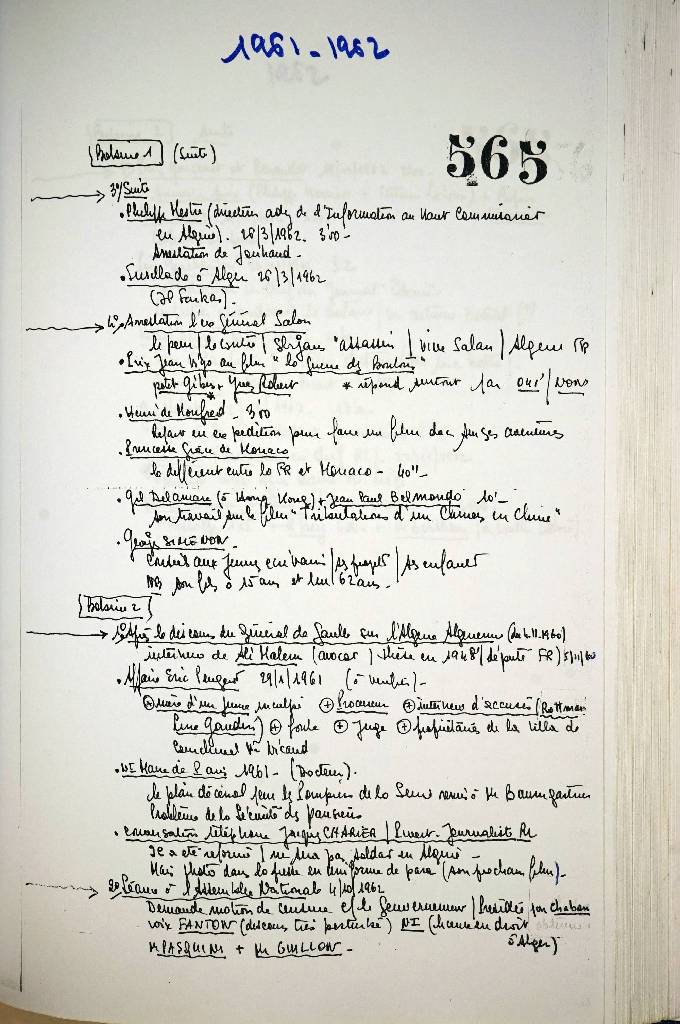 1961-1962
565
Bobine 1 (Suite)
3°/Suite
• Philippe Mestre (directeur adj de l'Information au Haut Commissariat
en Algérie). 26/3/1962. 3'00 -
Arrestation de Jouhaud -
• Fusillade à Alger 26/3/1962
4° Arrestation l'ex Général Salan
le pour / le contre / Slogan "assassin / vive Salan / Algérie FR
• Prix Jean Vigo au film "la Guerre des Boutons"
petit Gibus + Yves Robert * répond surtout par oui / non
*
• Henri de Monfreid - 3'00
Repart en expédition pour faire un film de ses aventures
• Princesse Grâce de Monaco
le différent entre la FR et Monaco - 40"-
• Gil Delamare (à Hong Kong) + Jean Paul Belmondo 10'-
son travail sur le film "Tribulations d'un Chinois en Chine"
• Georges SIMENON -
Conseil aux jeunes écrivains / ses projets / ses enfants
son fils à 15 ans et lui 62 ans -
Bobine 2
1° Après le discours du Général de Gaulle sur l'Algérie Algérienne (du 4.11.1960)
interview de Ali Halem (avocat) thèse en 1948 / député FR) 5/11/60
• Affaire Eric Peugeot 29/1/1961 (à
⊕ mère d'un jeune inculpé ⊕ Procureur ⊕ interview d'accusés (Rottman
Line Gaudin) ⊕ foule ⊕ Juge ⊕ propriétaires de la villa de
• NI Maire de Paris 1961 - (Docteur).
le plan décénal pour les Pompiers de la Seine remis à Mr Baumgartner
Problème de la Sécurité des parisiens
• Conversation téléphone Jacques CHARIER / Journaliste RL
Il a été réformé / ne sera pas soldat en Algérie -
Mais photo dans la presse en uniforme de para (son prochain film) -
2° Séance à l'Assemblée Nationale 4/10/1962
Demande motion de censure c/ le Gouvernement / Présidée par Chaban
voix FANTON (discours très perturbé) NI (chargé en droit
à Alger)
M PASQUINI + Mr GUILLON -